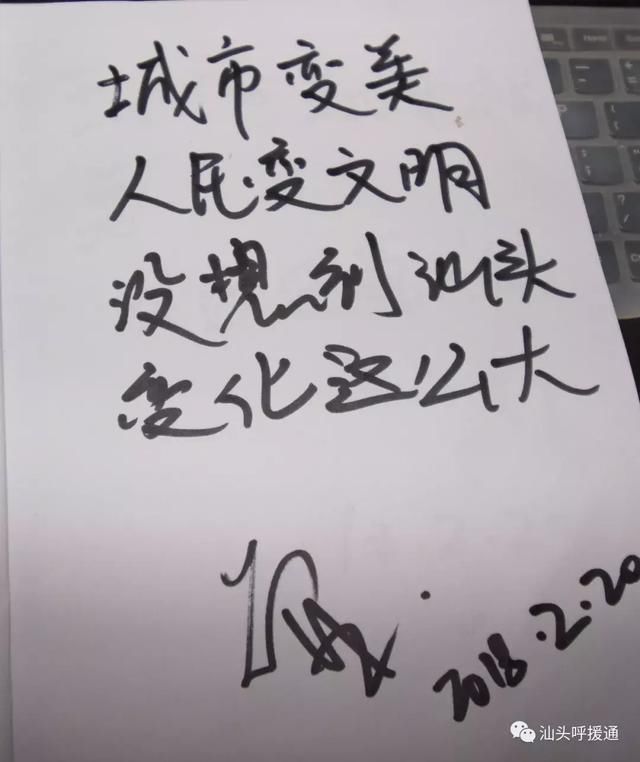 城市变美
人民变文明
没想到汕头
变化这么大
2018.2.20
汕头呼援通